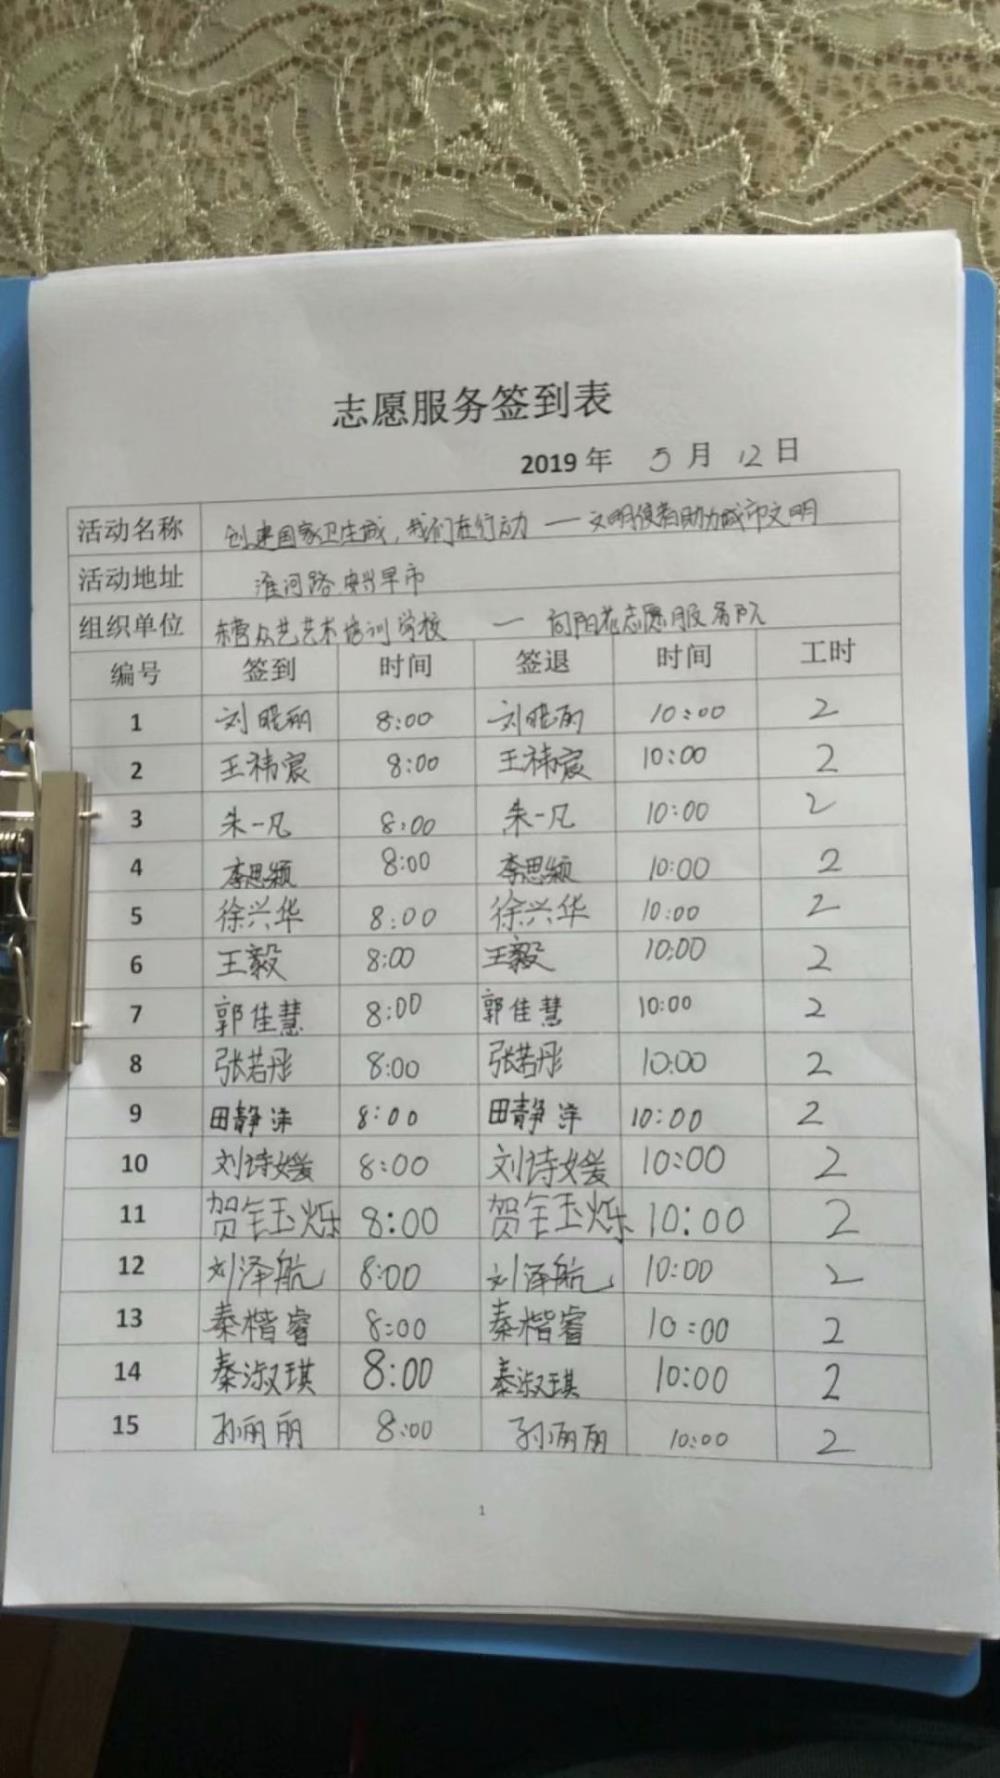 志愿服务签到表
2019 年 5 月 12 日
活动名称 创建国家卫生城,我们在行动 — 文明使者助力城市文明
活动地址 淮河路 安兴早市
组织单位 东营众艺艺术培训学校 — 向阳花志愿服务队
编号 签到 时间 签退 时间 工时
1 刘晓丽 8:00 刘晓丽 10:00 2
2 王祎宸 8:00 王祎宸 10:00 2
3 朱一凡 8:00 朱一凡 10:00 2
4 李思颖 8:00 李思颖 10:00 2
5 徐兴华 8:00 徐兴华 10:00 2
6 王毅 8:00 王毅 10:00 2
7 郭佳慧 8:00 郭佳慧 10:00 2
8 张若彤 8:00 张若彤 10:00 2
9 田静洋 8:00 田静洋 10:00 2
10 刘诗媛 8:00 刘诗媛 10:00 2
11 贺钰烁 8:00 贺钰烁 10:00 2
12 刘泽航 8:00 刘泽航 10:00 2
13 秦楷睿 8:00 秦楷睿 10:00 2
14 秦淑琪 8:00 秦淑琪 10:00 2
15 孙丽丽 8:00 孙丽丽 10:00 2
1